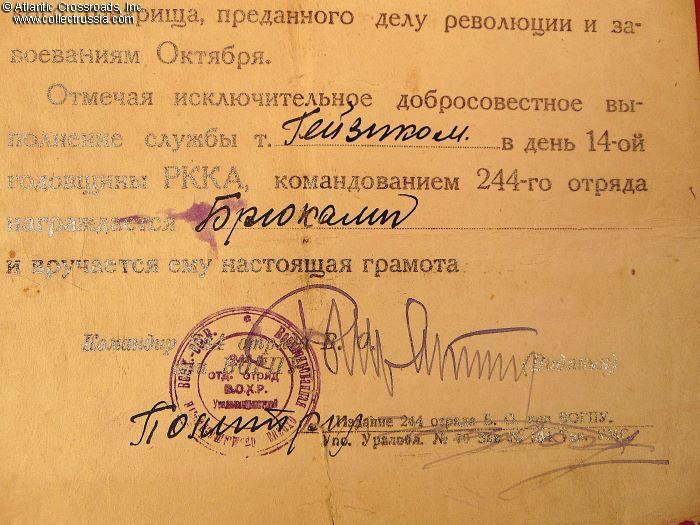 © Atlantic Crossroads, Inc.
www.collectrussia.com
рища, преданного делу революции и за-
воеваниям Октября.
Отмечая исключительное добросовестное вы-
полнение службы т. Гейзиком. в день 14-ой
годовщины РККА, командованием 244-го отряда
награждается Брюками
и вручается ему настоящая грамота
Командир 244 отряда В. О.
при ВОГПУ
244-й
отд. отряд
В.О.Х.Р.
Политрук
Издание 244 отряда В. О. при ВОГПУ.
Упо. Уралобл. №